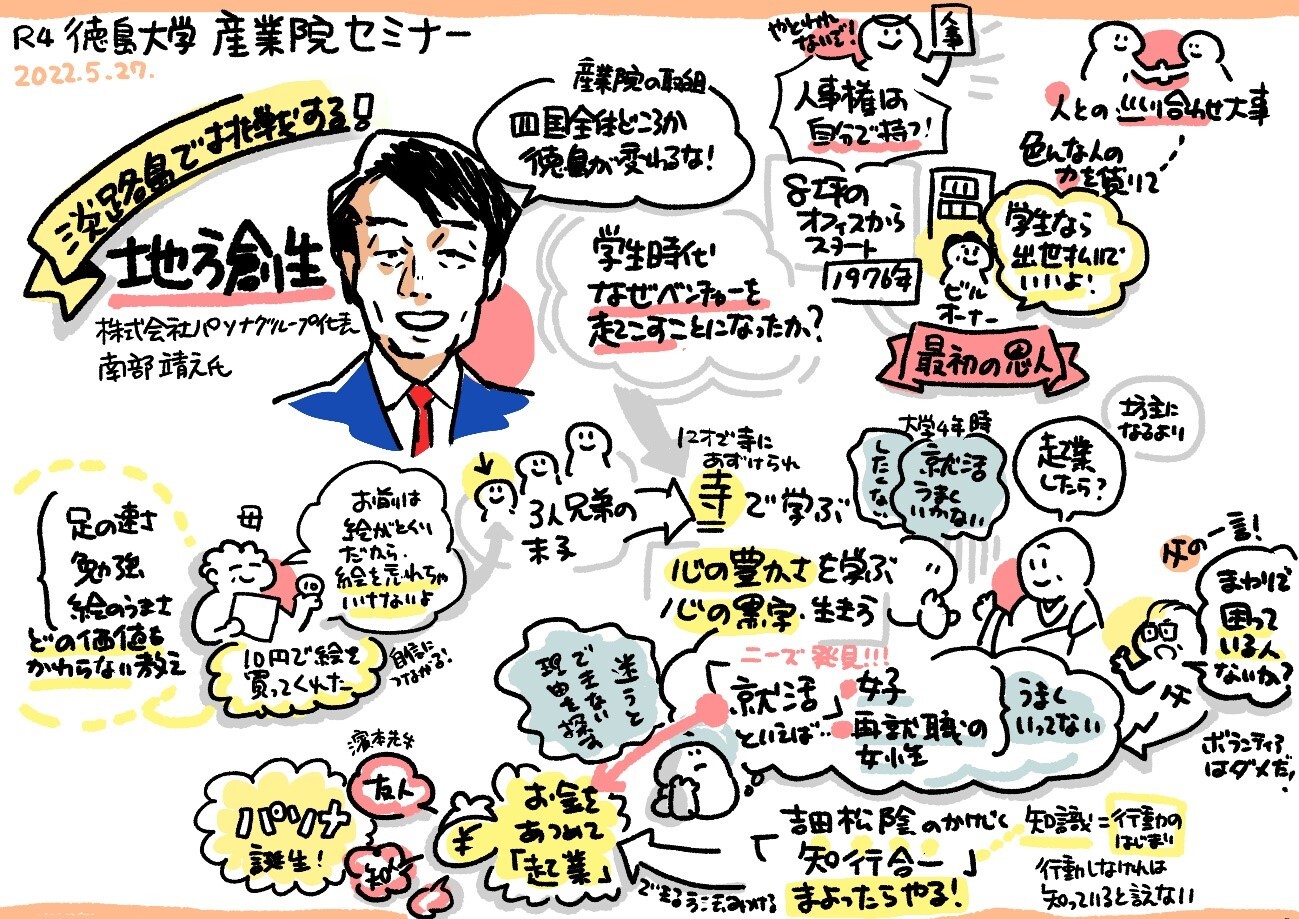 R4 徳島大学 産業院セミナー
2022.5.27.
淡路島でな挑戦をする!
地方創生
株式会社パソナグループ代表
南部靖之氏
産業院の取組
四国全体どころか
徳島が変わるな!
学生時代
なぜベンチャーを
起こすことになったか?
やとわれ
ないで!
人事
人事権は
自分で持つ!
8坪の
オフィスから
スタート
1976年
人との
合わせ大事
色んな人の
力を貸りて
学生なら
出世払いで
いいよ!
ビル
オーナー
最初の恩人
足の速さ
勉強
絵のうまさ
どの価値も
かわらない教え
母
お前は
絵がとくい
だから、
絵を忘れちゃ
いけないよ
10
10円で絵を
買ってくれた
自信に
つながる!
3人兄弟の
末子
12才で寺に
あずけられ
寺で学ぶ
心の豊かさを学ぶ
心の黒字
大学4年時
就活
うまく
いかない
したくない
起業
したら?
坊主に
なるより
父の一言!
まわりで
困って
いる人
ないか?
父
ボランティア
はダメだ!
ニーズ発見!!!
「就活」
といえば…
女子
再就職の
女性
うまく
いってない
迷うと
できない
理由を探す
お金を
あつめて
「起業」
¥
友人
知
パソナ
誕生!
吉田松陰のかけじく
「知行合一」
まよったらやる!
知識=行動の
はじまり
行動しなければ
知っていると言えない